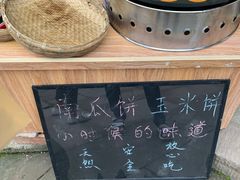 南瓜饼 玉米饼
小时候的味道
天然 安全 放心吃